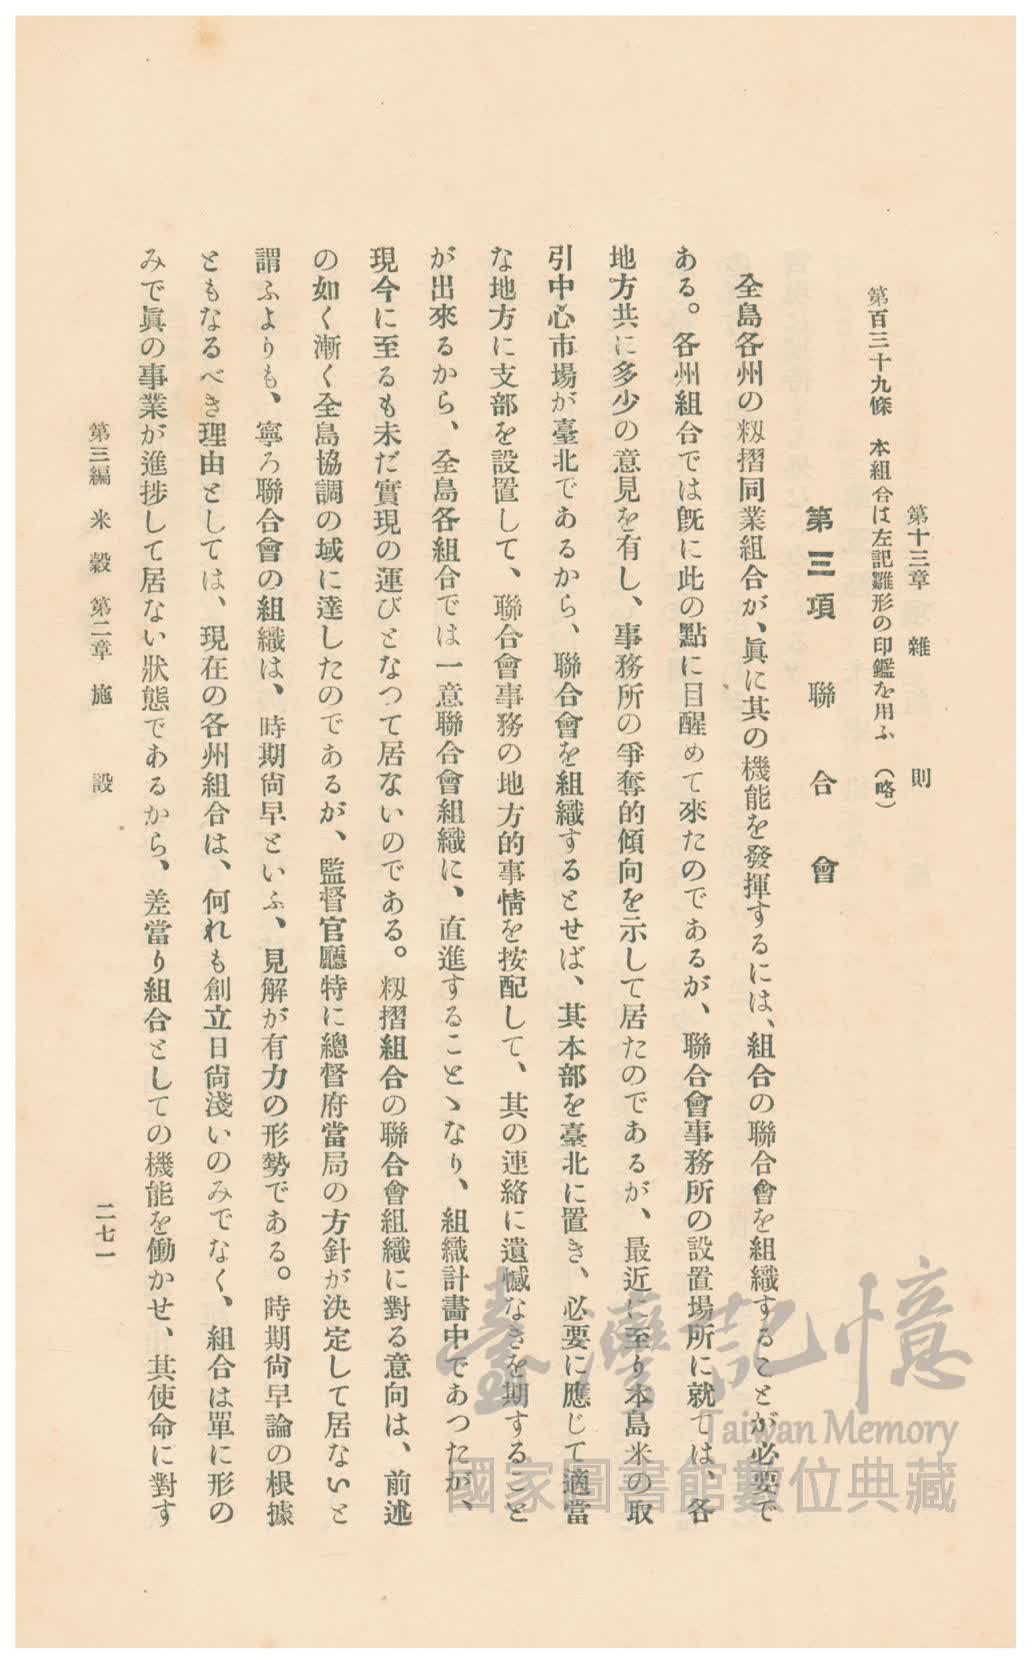 第十三章　雜　則
第百三十九條　本組合は左記雛形の印鑑を用ふ（略）
第三項　聯合會
全島各州の籾摺同業組合が、眞に其の機能を發揮するには、組合の聯合會を組織することが必要で
ある。各州組合では既に此の點に目醒めて來たのであるが、聯合會事務所の設置場所に就ては、各
地方共に多少の意見を有し、事務所の爭奪的傾向を示して居たのであるが、最近に至り本島米の取
引中心市場が臺北であるから、聯合會を組織するとせば、其本部を臺北に置き、必要に應じて適當
な地方に支部を設置して、聯合會事務の地方的事情を按配して、其の連絡に遺憾なきを期すること
が出來るから、全島各組合では一意聯合會組織に、直進することゝなり、組織計畵中であつたが、
現今に至るも未だ實現の運びとなつて居ないのである。籾摺組合の聯合會組織に對る意向は、前述
の如く漸く全島協調の域に達したのであるが、監督官廳特に總督府當局の方針が決定して居ないと
謂ふよりも、寧ろ聯合會の組織は、時期尙早といふ、見解が有力の形勢である。時期尙早論の根據
ともなるべき理由としては、現在の各州組合は、何れも創立日尙淺いのみでなく、組合は單に形の
みで眞の事業が進捗して居ない狀態であるから、差當り組合としての機能を働かせ、其使命に對す
第三編　米穀　第二章　施　設
二七一
臺灣記憶
Taiwan Memory
國家圖書館數位典藏